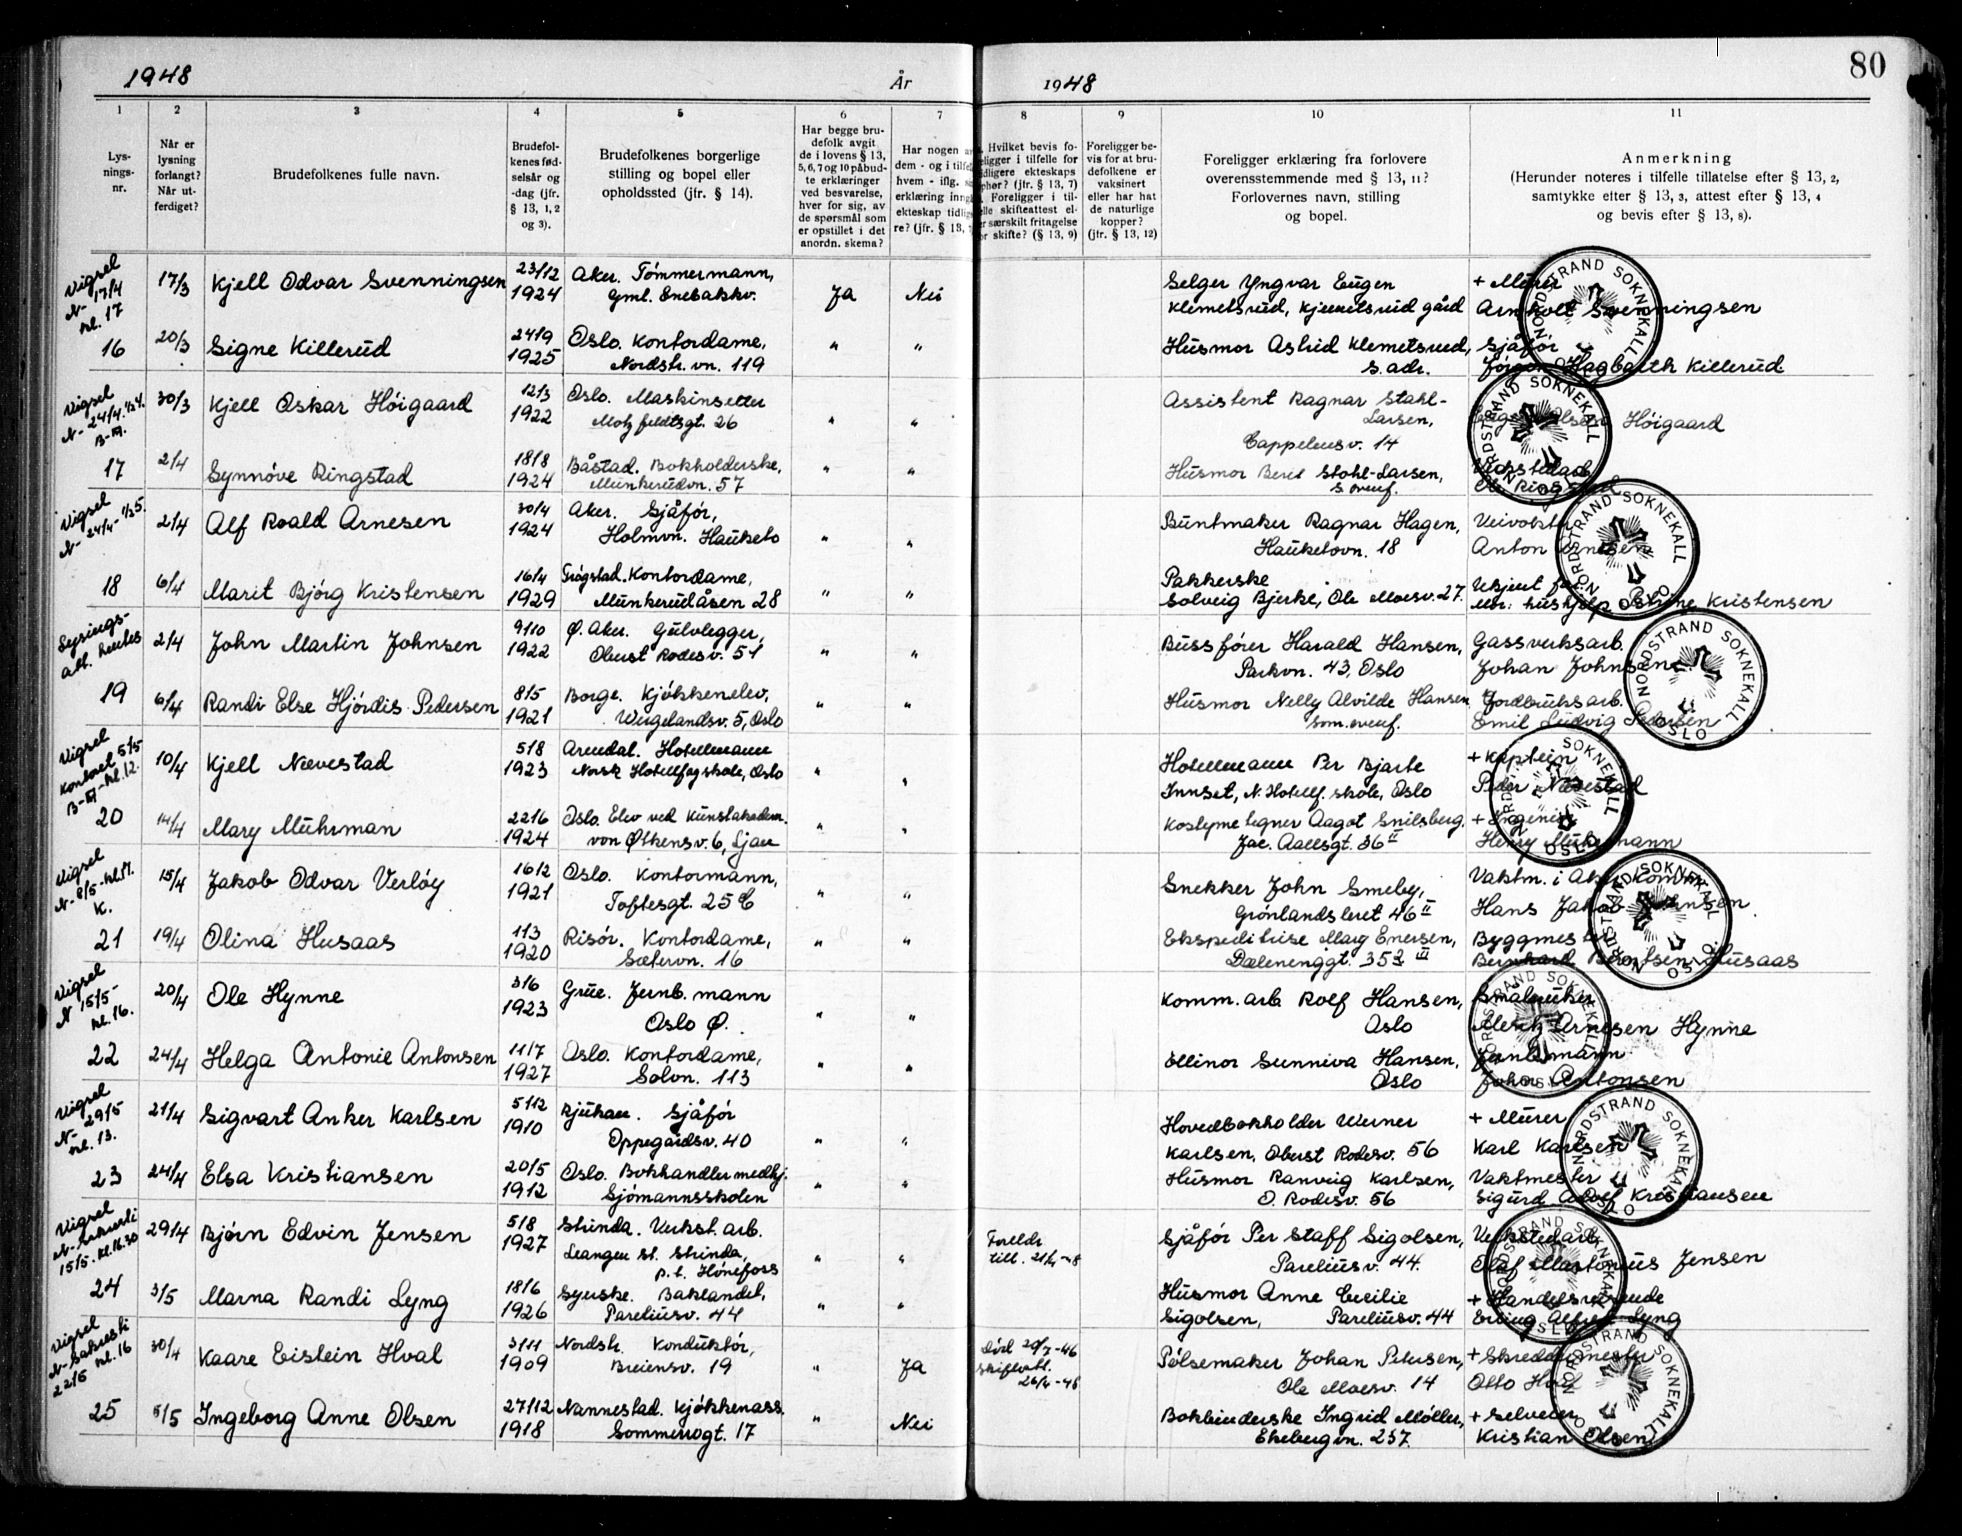 1948
År
1948
80
1
2
3
4
5
6
7
8
9
10
11
Lys-
nings-
nr.
Når er
lysning
forlangt?
Når ut-
ferdiget?
Brudefolkenes fulle navn.
Brudefol-
kenes fød-
selsår og
-dag (jfr.
§ 13, 1, 2
og 3).
Brudefolkenes borgerlige
stilling og bopel eller
opholdssted (jfr. § 14).
Har begge bru-
defolk avgit
de i lovens § 13,
5, 6, 7 og 10 påbud-
te erklæringer
ved besvarelse,
hver for sig, av
de spørsmål som
er opstillet i det
anordn. skema?
Har nogen
dem - og i tilfe
hvem - iflg.
erklæring inng
ekteskap tidlig
re? (jfr. § 13,
Hvilket bevis fo-
religger i tilfelle for
tidligere ekteskaps
ophør? (jfr. § 13, 7)
Foreligger i til-
felle skifteattest el-
er særskilt fritagelse
or skifte? (§ 13, 9)
Foreligger be-
vis for at bru-
defolkene er
vaksinert
eller har hat
de naturlige
kopper?
(jfr. § 13, 12)
Foreligger erklæring fra forlovere
overensstemmende med § 13, 11?
Forlovernes navn, stilling
og bopel.
Anmerkning
(Herunder noteres i tilfelle tillatelse efter § 13, 2,
samtykke efter § 13, 3, attest efter § 13, 4
og bevis efter § 13, 8).
Vigsel
N- 17/4
kl. 17
17/3 Kjell Odvar Svenningsen 23/12 1924 Aker. Tömmermann,
Gml. Enebakkv. Ja Nei
Selger Yngvar Eugen
Klemetsrud, Kjemetsrud gård
+ Murer
Arnholt Svenningsen
16 20/3 Signe Killerud 24/9 1925 Oslo. Kontordame,
Nordstr. vn. 119 " "
Husmor Astrid Klemetsrud,
s. adr.
Sjåfør
Jørgen Hagbarth Killerud
Vigsel
N- 24/4
B-III.
30/3 Kjell Oskar Höigaard 12/3 1922 Oslo. Maskinsetter
Motzfeldtsgt. 26 " "
Assistent Ragnar Stahl-
Larsen,
Cappelensv. 14
Höigaard
17 2/4 Synnöve Ringstad 18/8 1924 Båstad. Bokholderske,
Munkerudvn. 57 " "
Husmor Berit Stahl-Larsen,
s. ovenf.
Ringstad
Vigsel
N- 24/4
2/4 Alf Roald Arnesen 30/4 1924 Aker. Sjåför,
Holmvn. Hauketo " "
Buntmaker Ragnar Hagen,
Hauketovn. 18
Veivokter
Anton Arnesen
18 6/4 Marit Björg Kristensen 16/4 1929 Trögstad. Kontordame,
Munkerudåsen 28 " "
Pakkerske
Solveig Bjerke, Ole Moesv. 27.
Ukjent far
Mor: hushjelp Kristensen
Lysnings-
att. hentes
2/4 John Martin Johnsen 9/10 1922 Ø. Aker. Gulvlegger,
Oberst Rodesv. 51 " "
Bussfører Harald Hansen,
Parkvn. 43, Oslo
Gassverksarb.
Johan Johnsen
19 6/4 Randi Else Hjördis Pedersen 8/5 1921 Borge. Kjökkenelev,
Wergelandsv. 5, Oslo " "
Husmor Nelly Alvilde Hansen
som ovenf.
Jordbruksarb.
Emil Ludvig Pedersen
Vigsel
Kontoret 5/5
B-III- kl. 12.
10/4 Kjell Nævestad 5/8 1923 Arendal. Hotellmann
Norsk Hotellfagskole, Oslo " "
Hotellmann Per Bjarte
Innset, N. Hotellf. skole, Oslo
+ Kaptein
Peder Nævestad
20 14/4 Mary Muhrman 22/6 1924 Oslo. Elev ved Kunstakadem.
von Øtkensv. 6, Ljan " "
Kostymetegner Aagot Snilsberg.
Jac. Aallsgt. 36 II
+ Ingeniør
Henry
Vigsel
N- 8/5 - kl. 17.
K.
15/4 Jakob Odvar Verlöy 16/2 1921 Oslo. Kontormann,
Toftesgt. 25 C " "
Snekker John Smeby,
Grönlandsleret 46 II
Vaktm. i Aker komm.
Hans Jakob
21 19/4 Olina Husaas 11/3 1920 Risör. Kontordame,
Sætervn. 16 " "
Ekspeditrise Mary Enersen,
Dælenenggt. 35 III
Byggmester
Bernhard Berntsen Husaas
Vigsel
N 15/5 -
kl. 16.
20/4 Ole Hynne 3/6 1923 Grue. Jernb. mann
Oslo Ø. " "
Komm. arb. Rolf Hansen,
Oslo
Småbruker
Arnesen Hynne
22 24/4 Helga Antonie Antonsen 11/7 1927 Oslo. Kontordame,
Solvn. 113 " "
Ellinor Sunniva Hansen,
Oslo
Jernb.mann
Johan Antonsen
Vigsel
N- 29/5
kl. 13.
21/4 Sigvart Anker Karlsen 5/12 1910 Rjukan. Sjåför
Oppegårdsv. 40 " "
Hovedbokholder Werner
Karlsen, Oberst Rodesv. 56
+ Murer
Karl Karlsen
23 24/4 Elsa Kristiansen 20/5 1912 Oslo. Bokhandlermedhj.
Sjömannsskolen " "
Husmor Ranveig Karlsen,
O. Rodesv. 56
Vaktmester
Sigurd Adolf Kristiansen
Vigsel
N- sakristi
15/5 - kl. 16.30
29/4 Bjørn Edvin Jensen 5/8 1927 Strinda. Verkst. arb.
Leangen st. Strinda,
p.t. Hönefoss " "
Foreldr.
till. 21/4 -48
Sjåför Per Staff Sigolsen,
Pareliusv. 44.
Verkstedarb.
Olaf Martonius Jensen
24 3/5 Marna Randi Lyng 18/6 1926 Gjerske. Baklandet,
Pareliusv. 44 " "
Husmor Anne Cecilie
Sigolsen, Pareliusv. 44
+ Handelsreisende
Erling Alfred Lyng
Vigsel
N- sakristi
22/5 kl. 16
30/4 Kaare Eistein Hval 3/11 1909 Nordstr. Konduktör,
Breiensv. 19 " Ja
Død 29/7 -46
skifteatt.
26/4 -48
Pölsemaker Johan Petersen,
Ole Moesv. 14
+ Skreddermester
Otto Hval
25 5/5 Ingeborg Anne Olsen 27/12 1918 Nannestad. Kjökkenass.
Sommerrogt. 17 " Nei
Bokbinderske Ingrid Möller,
Ekebergvn. 237.
+ Selveier
Kristian Olsen
NORDSTRAND SOKNEKALL OSLO
NORDSTRAND SOKNEKALL OSLO
NORDSTRAND SOKNEKALL OSLO
NORDSTRAND SOKNEKALL OSLO
NORDSTRAND SOKNEKALL OSLO
NORDSTRAND SOKNEKALL OSLO
NORDSTRAND SOKNEKALL OSLO
NORDSTRAND SOKNEKALL OSLO
NORDSTRAND SOKNEKALL OSLO
NORDSTRAND SOKNEKALL OSLO